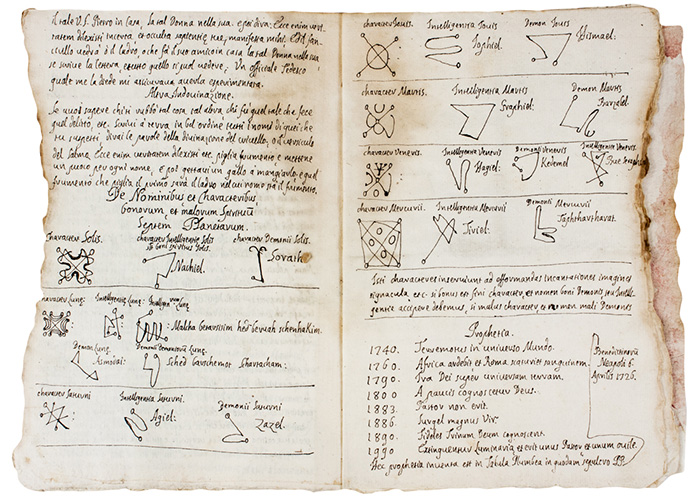 il tale V.S. Pietro in Casa, la tal Donna nella sua. e poi diva: Ecce enim veri-
tatem dilexisti incerta, et occulta sapientiæ tuæ, manifesta mihi. Ed il fan-
ciullo vedrà o il ladro, che fa il suo amico in casa la tal Donna nella sua,
se scuive la lettera, e tutto quello si vuol vedere. Un officiale Tedesco
quale me la diede mi assicurava averla esperimentata.
Altra Indovinazione.
Se vuoi sapere chi hà rubbato tal cosa, tal altra, chi fù quel tale che fece
quel delitto, etc. Scrivi à terra in bel ordine tutti i nomi di quei che
tu suspetti, dirai le parole della divinazione del criuello, o il versiculo
del salmo, Ecce enim veritatem dilexisti etc. piglia frumento e mettene
un puoco per ogni nome, e poi gettarai un gallo a mangiarlo e quel
frumento che piglia il primo sarà il ladro nel cui nome sta il frumento.
De Nominibus et Characteribus
bonorum et malorum Spirituum
Septem Planetarum.
Character Solis.
Character Intelligentiæ Solis
Nachiel.
Character Demonii Solis.
Sorath
Character Lunę.
Intelligentię Lunę.
Malcha betarsisim hed beruah schenhakim.
Demon Lunę
Asmodai:
Demonii Demoniorum Lunę.
Sched barschemot Shartacham:
Character Saturni
Intelligentia Saturni
Agiel:
Demonii Saturni
Zazel.
Character Iouis.
Intelligentia Iouis
Iophiel.
Demon Iouis
Hismael:
Character Martis.
Intelligentia Martis
Graphiel:
Demon Martis
Barzabel.
Character Veneris.
Intelligentia Veneris
Hagiel:
Demonis Veneris
Kedemel
Intelligentiæ Veneris.
Bne Seraphim
Character Mercurii.
Intelligentia Mercurii
Tiriel:
Demon Mercurii
Taphthartharath.
Isti characteres inserviunt ad efformandas incantationes imagines
signacula, etc: si bonus est fini character, et nomen boni Demonis seu Intelli-
gentiæ accipere debemus, si malus character, et nomen mali Demonis
Prophetia.
1740. Terremotus in universo Mundo.
1760. Africa ardebit et Roma patiet sanguinem.
1790. Ira Dei super universam terram.
1800 A paucis cognoscetur Deus.
1883. Pastor non erit.
1886. Surget magnus Vir.
1890. Infideles Trinum Deum cognoscent.
1990 Extinguentur Luminaria, et erit unus Pastor, et unum ouile.
Hec prophetia inventa est in Tabula Plumbea in quodam sepulcro PP.
Benedictinorū
Neapoli 6
Aprilis 1726.